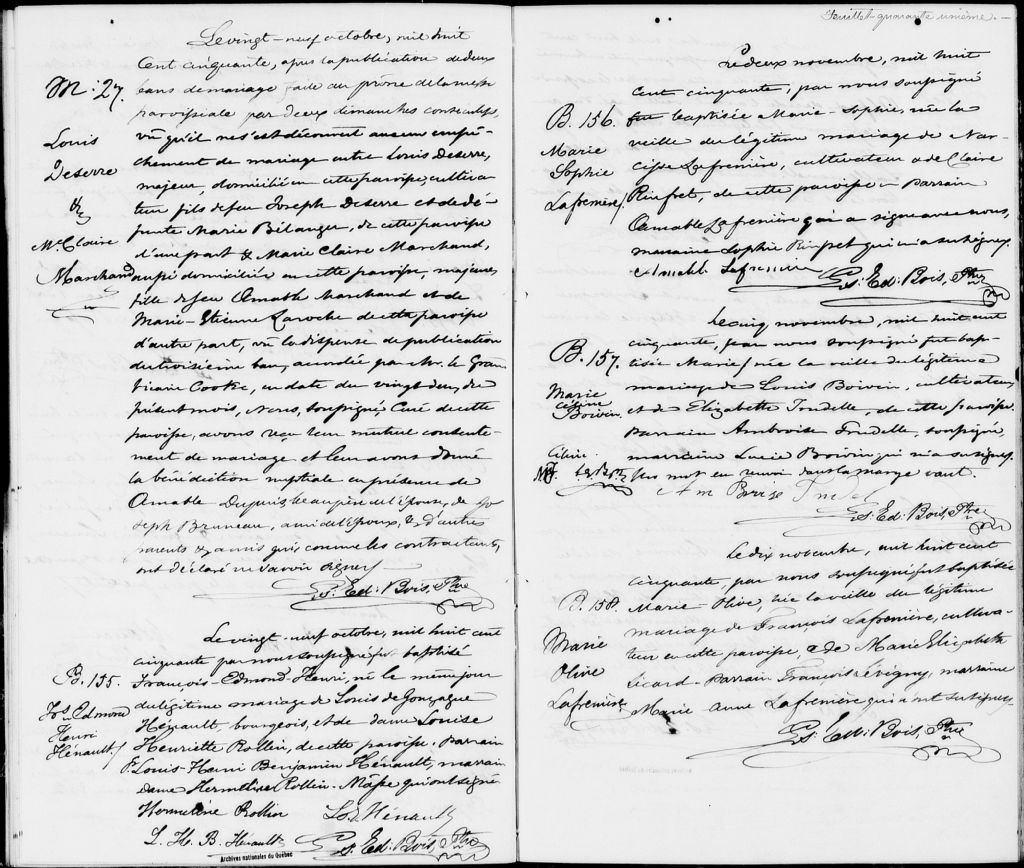 Le vingt-neuf octobre, mil huit
cent cinquante, après la publication de deux
M: 27.
bans de mariage faite au prône de la messe
paroissiale par deux dimanches consécutifs,
Louis
Deserre
&
Me Claire
Marchand
vû qu'il ne s'est découvert aucun empê-
chement de mariage entre Louis Deserre,
majeur, domicilié en cette paroisse, cultiva-
teur fils de feu Joseph Deserre et de dé-
funte Marie Bélanger, de cette paroisse
d'une part & Marie Claire Marchand,
aussi domiciliée en cette paroisse, majeure,
fille de feu Amable Marchand et de
Marie-Etienne Laroche de cette paroisse
d'autre part, vû la dispense de publication
du troisième ban, accordée par Mr. le Grand
Vicaire Cooke, en date du vingt deux du
présent mois, Nous, soussigné, Curé de cette
paroisse, avons reçu leur mutuel consente-
ment de mariage et leur avons donné
la bénédiction nuptiale en présence de
Amable Dupuis, beaupère de l'épouse, de Jo-
seph Bruneau, ami de l'époux, & d'autres
parents & amis qui, comme les contractants,
ont déclaré ne savoir signer
Ls. Ed: Bois, Ptre
Le vingt-neuf octobre, mil huit cent
cinquante par nous soussigné fut baptisé
B. 155.
François-Edmond-Henri, né le même jour
Frs Edmond
Henri
Hénault
du légitime mariage de Louis de Gonzague
Hénault, bourgeois, et de dame Louise
Henriette Rollin, de cette paroisse. Parrain
Louis-Henri Benjamin Hénault, marraine
Dame Hermeline Rollin-Mâsse qui ont signé
Hermeline Rollin
Ls. G Hénault
L. H. B. Hénault
Ls. Ed: Bois, Ptre
Archives nationales du Québec
Feuillet quarante unième.
Le deux novembre, mil huit
cent cinquante, par nous soussigné
B. 156.
Marie
Sophie
Lafrenière
fut baptisée Marie-Sophie, née la
veille du légitime mariage de Nar-
cisse Lafrenière, cultivateur & de Claire
Rinfret, de cette paroisse - Parrain
Amable Lafrenière qui a signé avec nous,
marraine Sophie Rinfret qui n'a su signer.
Amable Lafrenière
Ls. Ed: Bois, Ptre
Le cinq novembre, mil huit cent
cinquante, par nous soussigné fut bap-
B. 157.
Marie
Boivin
tisée Marie/ née la veille du légitime
mariage de Louis Boivin, cultivateur,
et de Elizabeth Trudelle, de cette paroisse.
Parrain Ambroise Trudelle, soussigné,
marraine Lucie Boivin qui n'a su signer.
Un mot en renvoi dans la marge vaut.
Ambroise Trudel
Ls. Ed: Bois, Ptre
Le dix novembre, mil huit cent
cinquante, par nous soussigné fut baptisée
B. 158.
Marie
Olive
Lafrenière
Marie-Olive, née la veille du légitime
mariage de François Lafrenière, cultiva-
teur en cette paroisse, & de Marie Elizabeth
Sicard - Parrain François Evigny, marraine
Marie Anne Lafrenière qui n'ont su signer
Ls. Ed: Bois, Ptre